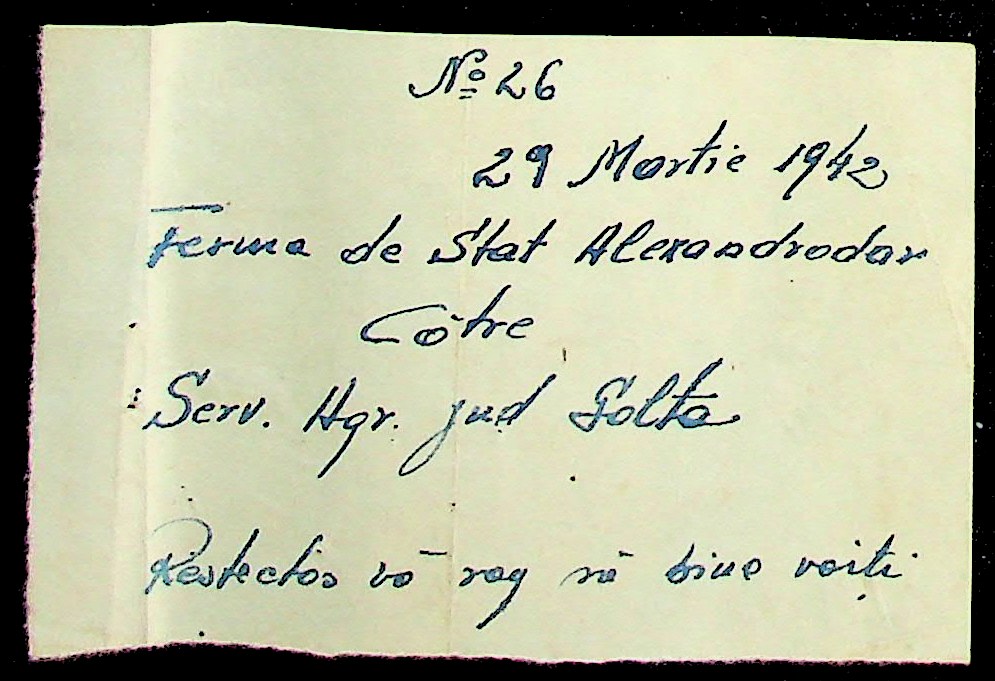 No 26
29 Martie 1942
Ferma de Stat Alexandrodar
Cōtre
Serv. Agr. jud Golta
Restectos vō rog sā bine voiti